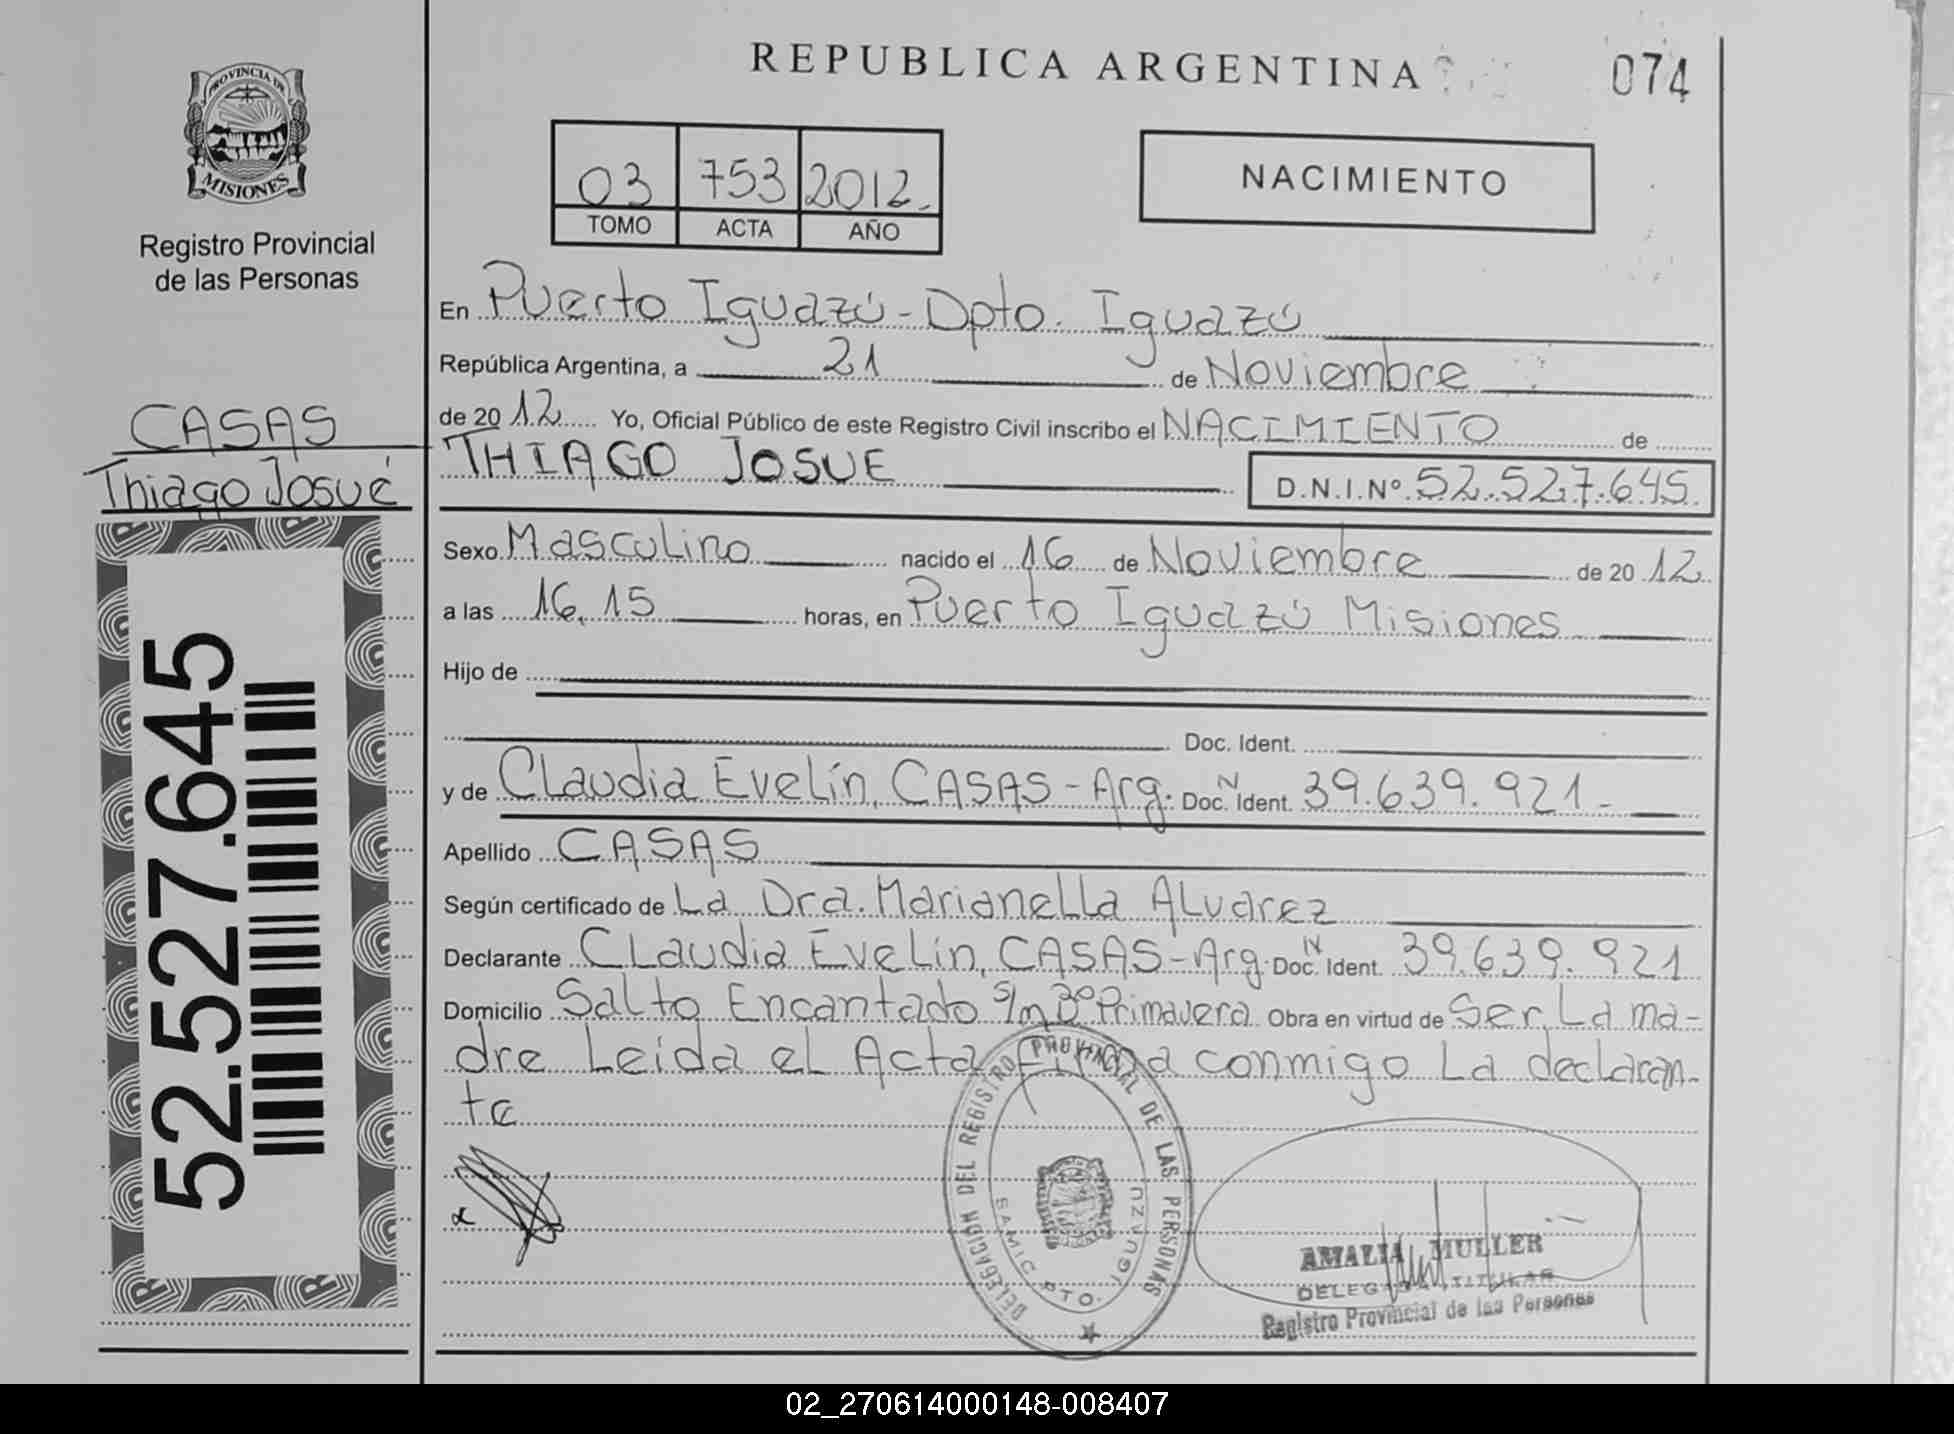 REPUBLICA ARGENTINA
074
PROVINCIA DE
MISIONES
Registro Provincial
de las Personas
03 753 2012.
TOMO ACTA AÑO
NACIMIENTO
En Puerto Iguazú - Dpto. Iguazú
República Argentina, a 21 de Noviembre
de 2012 Yo, Oficial Público de este Registro Civil inscribo el NACIMIENTO de
THIAGO JOSUE D.N.I.Nº 52.527.645
CASAS
Thiago Josué
52.527.645
Sexo Masculino nacido el 16 de Noviembre de 2012
a las 16,15 horas, en Puerto Iguazú Misiones
Hijo de
Doc. Ident.
y de Claudia Evelín, CASAS - Arg. Doc. N Ident. 39.639.921 -
Apellido CASAS
Según certificado de La Dra. Marianella Alvarez
Declarante Claudia Evelin, CASAS - Arg. Doc. N Ident. 39.639.921
Domicilio Salto Encantado s/n Bº Primavera Obra en virtud de Ser La ma-
dre Leida el Acta Firma conmigo La declaran-
te
DELEGACION DEL REGISTRO PROVINCIAL DE LAS PERSONAS
SAMIC PTO. IGUAZU
AMALIA MULLER
DELEGADA TITULAR
Registro Provincial de las Personas
02_270614000148-008407